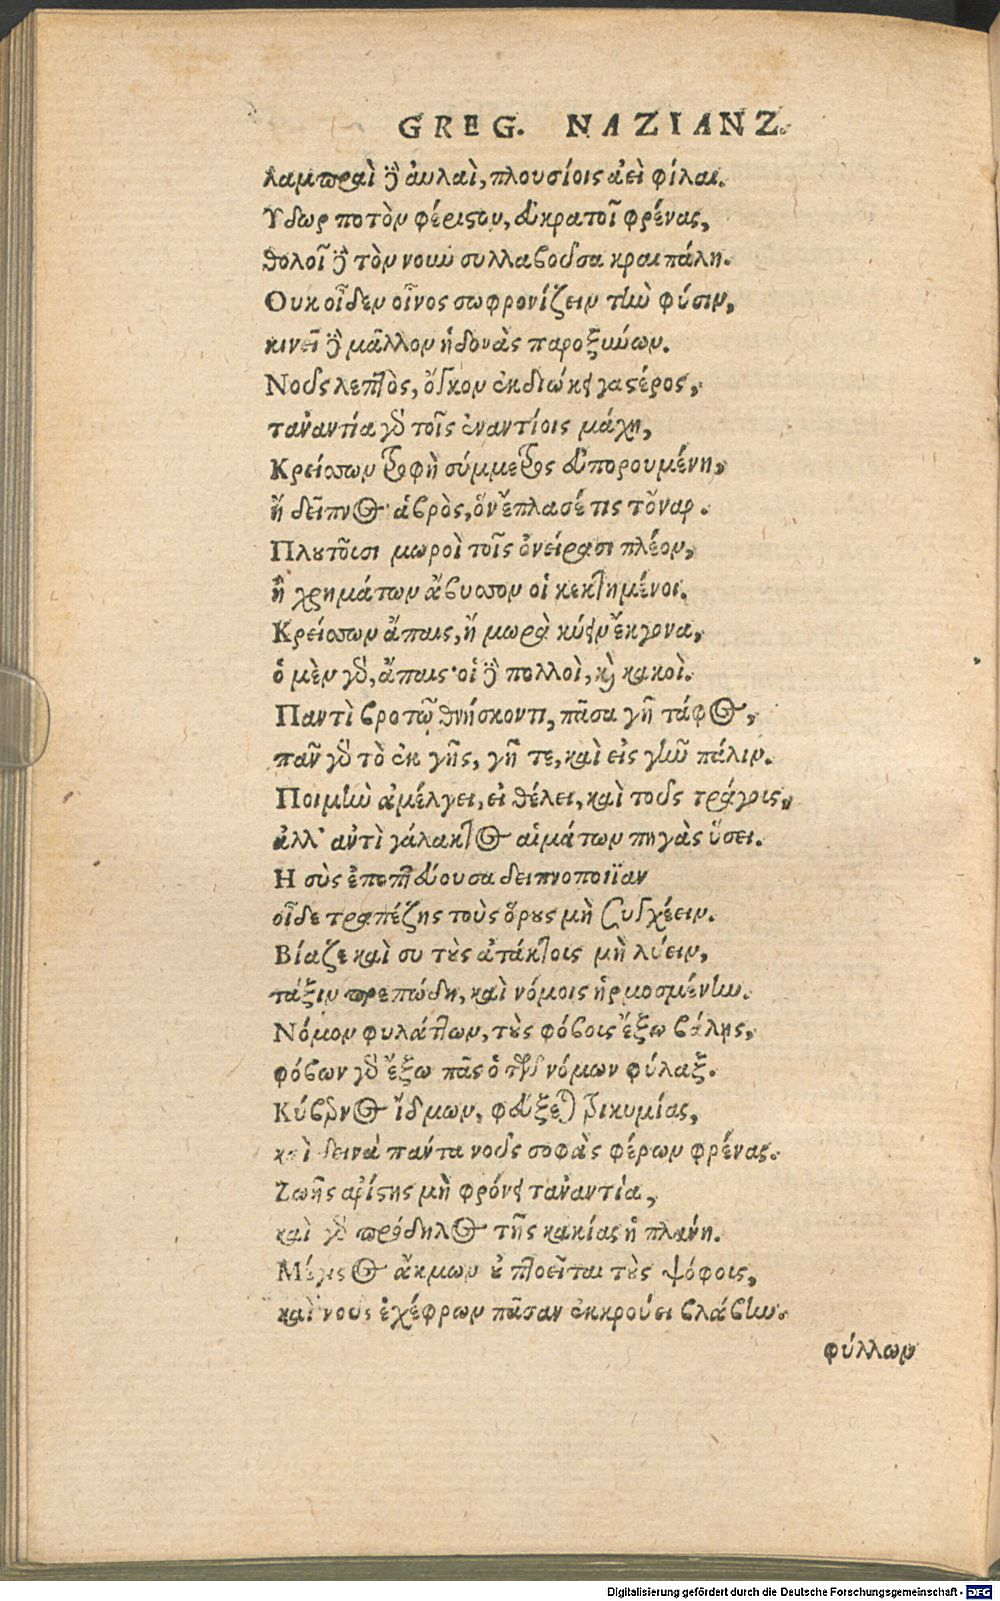 GREG. NAZIANZ.
λαμπραὶ δὲ ἀυλαὶ, πλουσίοις ἀεὶ φίλαι.
Υδωρ ποτὸν φέριστον, εὐκρατοῖ φρένας,
θολοῖ δὲ τὸν νοιῦ συλλαβοῦσα κραιπάλη.
Ουκ οἶδεν οἶνος σωφρονίζειν τὴν φύσιν,
κινεῖ δὲ μᾶλλον ἡδονὰς παροξύνων.
Νοῦς λεπτὸς, ὄγκον ἐκδιώκει γαστέρος,
τἀναντία γὰρ τοῖς ἐναντίοις μάχη,
Κρείσσων τροφὴ σύμμετρος εὐπορουμένη,
ἢ δεῖπνος ἁβρὸς, ὅν ἔπλασέ τις τὄναρ.
Πλουτοῦσι μωροὶ τοῖς ὀνείρασι πλέον,
ἢ χρημάτων ἄβυσσον οἱ κεκτημένοι.
Κρείσσων ἄπαις, ἢ μωρὰ κύειν ἔκγονα,
ὁ μὲν γὰρ, ἄπαις· οἱ δὲ πολλοὶ, καὶ κακοὶ.
Παντὶ βροτῷ θνήσκοντι, πᾶσα γῆ τάφος,
πᾶν γὰρ τὸ ἐκ γῆς, γῆ τε, καὶ εἰς γὴν πάλιν.
Ποιμὴν ἀμέλγει, εἰ θέλει, καὶ τοὺς τράγοις,
ἀλλ' ἀντὶ γάλακτος αἱμάτων πηγὰς ὕσει.
Η σὺς ἐποπτεύουσα δειπνοποιΐαν
οἶδε τραπέζης τοὺς ὅρους μὴ συγχέειν.
Βίαζε καὶ συ τοὺς ἀτάκτοις μὴ λύειν,
τάξιν πρεπώδη, καὶ νόμοις ἡρμοσμένην.
Νόμον φυλάττων, τοὺς φόβοις ἔξω βάλης,
φόβων γὰρ ἔξω πᾶς ὁ τῶν νόμων φύλαξ.
Κύβερνος ἴδμων, φεύξεται τρικυμίας,
καὶ δεινὰ πάντα νοῦς σοφὰς φέρων φρένας.
Ζωῆς ἀρίστης μὴ φρόνει τἀναντία,
καὶ γὰρ πρόδηλος τῆς κακίας ἡ πλάνη.
Μέγιστος ἄκμων οὐ πτοεῖται τοὺς ψόφοις,
καὶ νους ἐχέφρων πᾶσαν ἐκκρούει βλάβην.
φύλλων
Digitalisierung gefördert durch die Deutsche Forschungsgemeinschaft - DFG